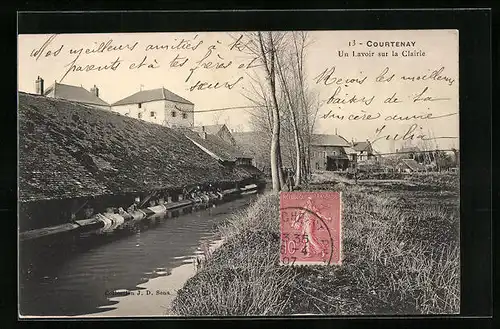 13 - COURTENAY
Un Lavoir sur la Clairie
Mes meilleurs amitiés à
parents et à tes frères et
sœurs
Reçois les meilleurs
baisers de la
sincère amie
Julia
10
Collection J. D. Sens